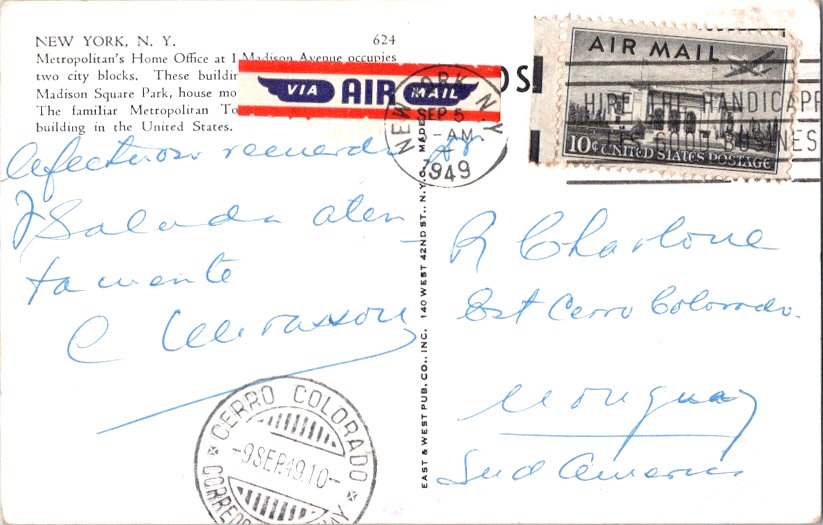 NEW YORK, N. Y. 624
Metropolitan's Home Office at 1 Madison Avenue occupies
two city blocks. These buildin
Madison Square Park, house mo
The familiar Metropolitan To
building in the United States.
VIA AIR MAIL
NEW YORK, N.Y.
SEP 5
-AM
1949
AIR MAIL
10¢ UNITED STATES POSTAGE
HIRE THE HANDICAPP
GOOD BUSINES
Afectuoso recuerdo
y Saluda aten
tamente
C
EAST & WEST PUB. CO., INC. 140 WEST 42ND ST., N.Y.C. MADE
R Charlone
Est Cerro Colorado.
Uruguay
Sud America
CERRO COLORADO
-9SEP.49.10-
CORREOS